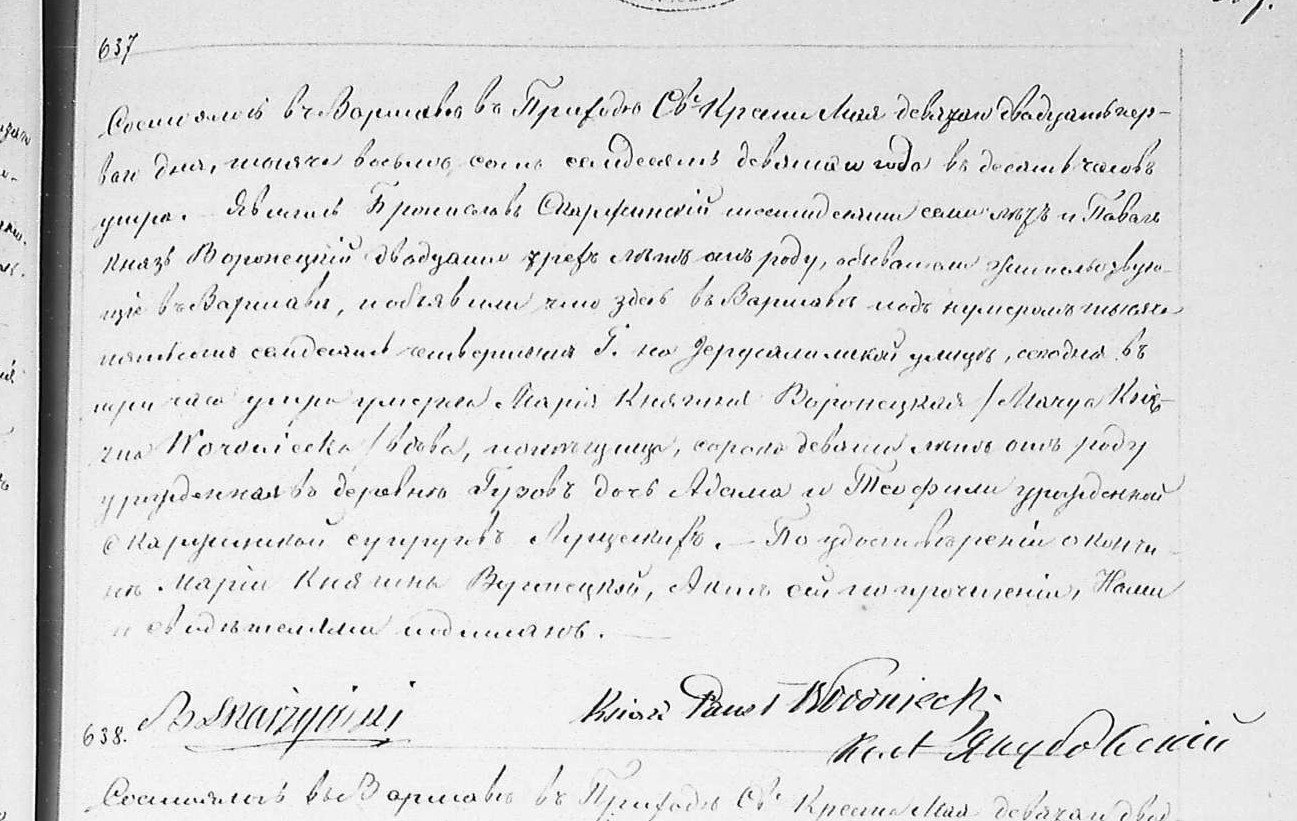 637
Состоялось въ Варшавѣ въ Приходѣ Св. Креста Мая девятаго двадцать пер-
ваго дня, тысяча восемь сотъ семдесятъ девятаго года въ десять часовъ
утра. Явились Брониславъ Скаржинскій шестидесяти семи лѣтъ и Павелъ
Князь Воронецкій двадцати трехъ лѣтъ отъ роду, обыватели жительствую-
щіе въ Варшавѣ, и объявили что здѣсь въ Варшавѣ подъ нумеромъ тысяча
пятьсотъ семдесятъ четвертымъ Г. на Іерусалимской улицѣ, сегодня въ
три часа утра умерла Марія Княгиня Воронецкая /Marya Księ-
żna Woroniecka/ вдова, помѣщица, сорока девяти лѣтъ отъ роду
урожденная въ деревнѣ Гузовъ дочь Адама и Теофили урожденной
Скаржинской супруговъ Лущескихъ. — По удостовѣреніи о кончи-
нѣ Маріи Княгини Воронецкой, Актъ сей по прочтеніи, Нами
и свидѣтелями подписанъ. —
B Skarżyński
Książe Paweł Woroniecki
Якубовскій
638.
Состоялось въ Варшавѣ въ Приходѣ Св. Креста Мая девятаго